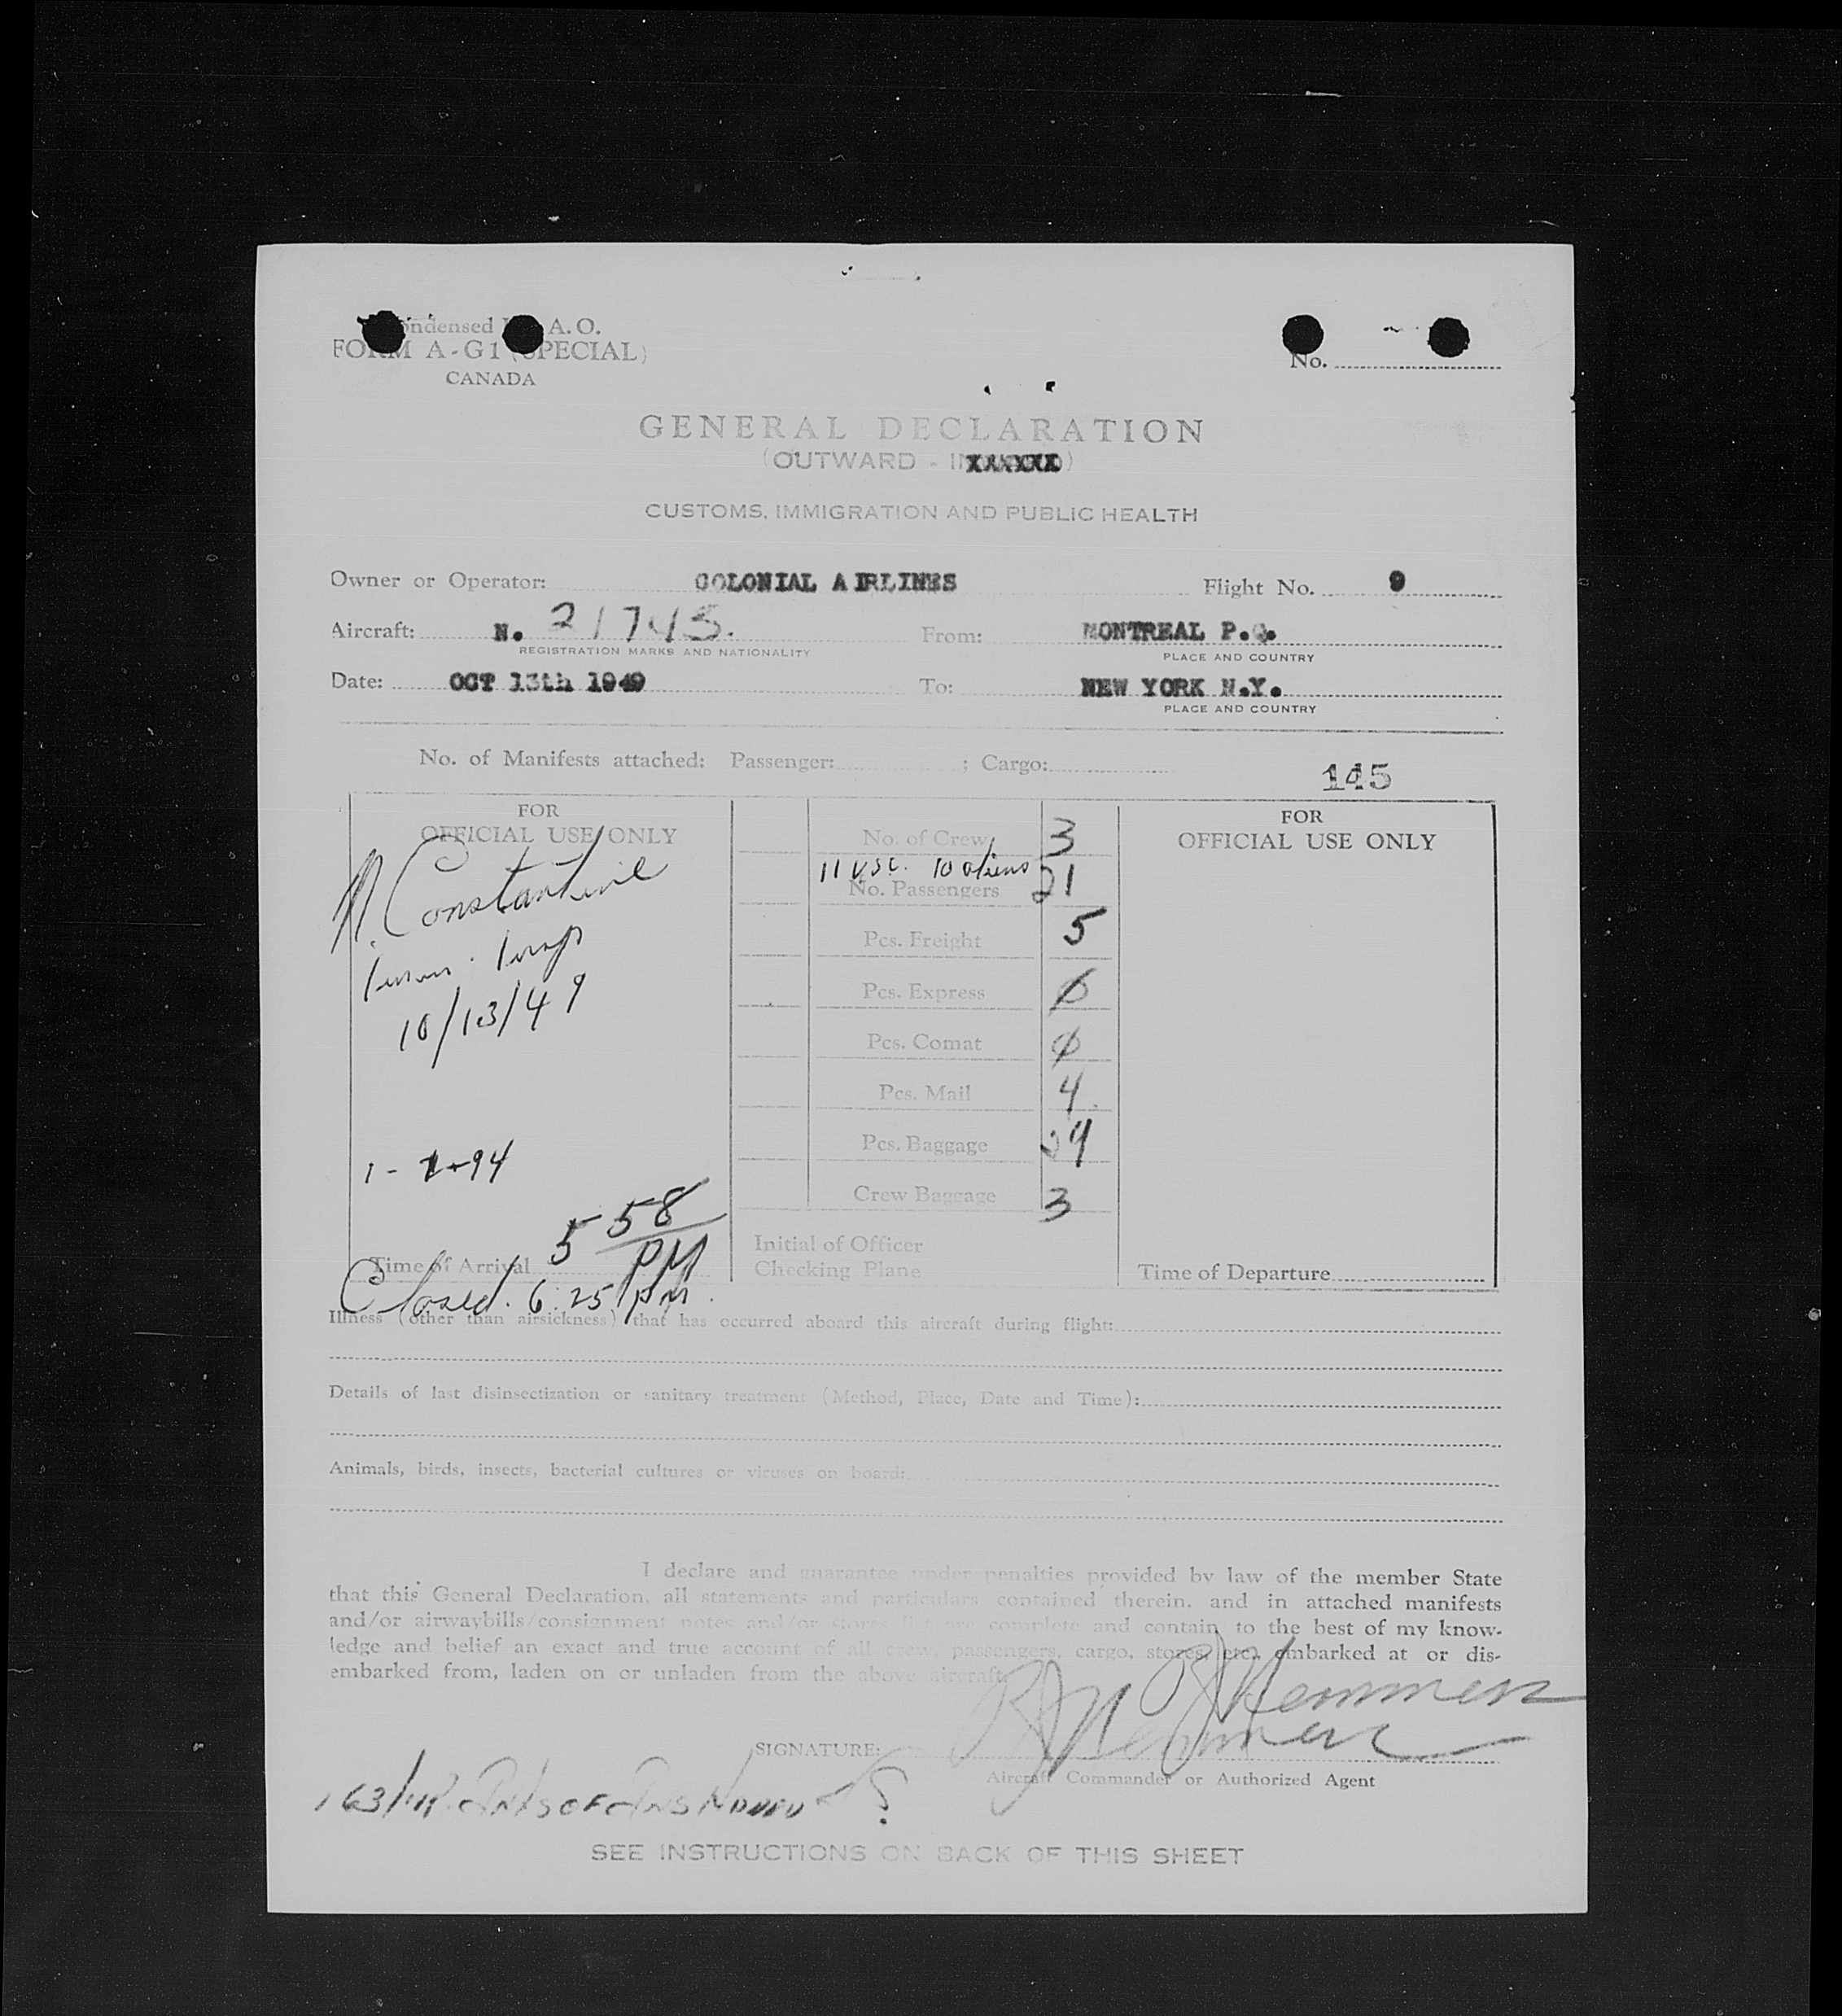 Condensed A.O.
FORM A-G1 (SPECIAL)
CANADA
No.
GENERAL DECLARATION
(OUTWARD - INXXXXXX)
CUSTOMS, IMMIGRATION AND PUBLIC HEALTH
Owner or Operator: COLONIAL AIRLINES Flight No. 9
Aircraft: N. 21745. From: MONTREAL P.Q.
REGISTRATION MARKS AND NATIONALITY PLACE AND COUNTRY
Date: OCT 13th 1949 To: NEW YORK N.Y.
PLACE AND COUNTRY
No. of Manifests attached: Passenger: ; Cargo:
145
FOR
OFFICIAL USE ONLY
N. Constantine
Immn. Insp
10/13/49
1 - 94
Time of Arrival 5 58 PM
Closed. 6:25 pm.
No. of Crew 3
11 USC. 10 aliens
No. Passengers 21
Pcs. Freight 5
Pcs. Express 0
Pcs. Comat 0
Pcs. Mail 4
Pcs. Baggage 24
Crew Baggage 3
Initial of Officer
Checking Plane
FOR
OFFICIAL USE ONLY
Time of Departure
Illness (other than airsickness) that has occurred aboard this aircraft during flight:
Details of last disinsectization or sanitary treatment (Method, Place, Date and Time):
Animals, birds, insects, bacterial cultures or viruses on board:
I declare and guarantee under penalties provided by law of the member State
that this General Declaration, all statements and particulars contained therein, and in attached manifests
and/or airwaybills/consignment notes and/or stores list are complete and contain to the best of my know-
ledge and belief an exact and true account of all crew, passengers, cargo, stores, etc. embarked at or dis-
embarked from, laden on or unladen from the above aircraft.
SIGNATURE:
Aircraft Commander or Authorized Agent
SEE INSTRUCTIONS ON BACK OF THIS SHEET